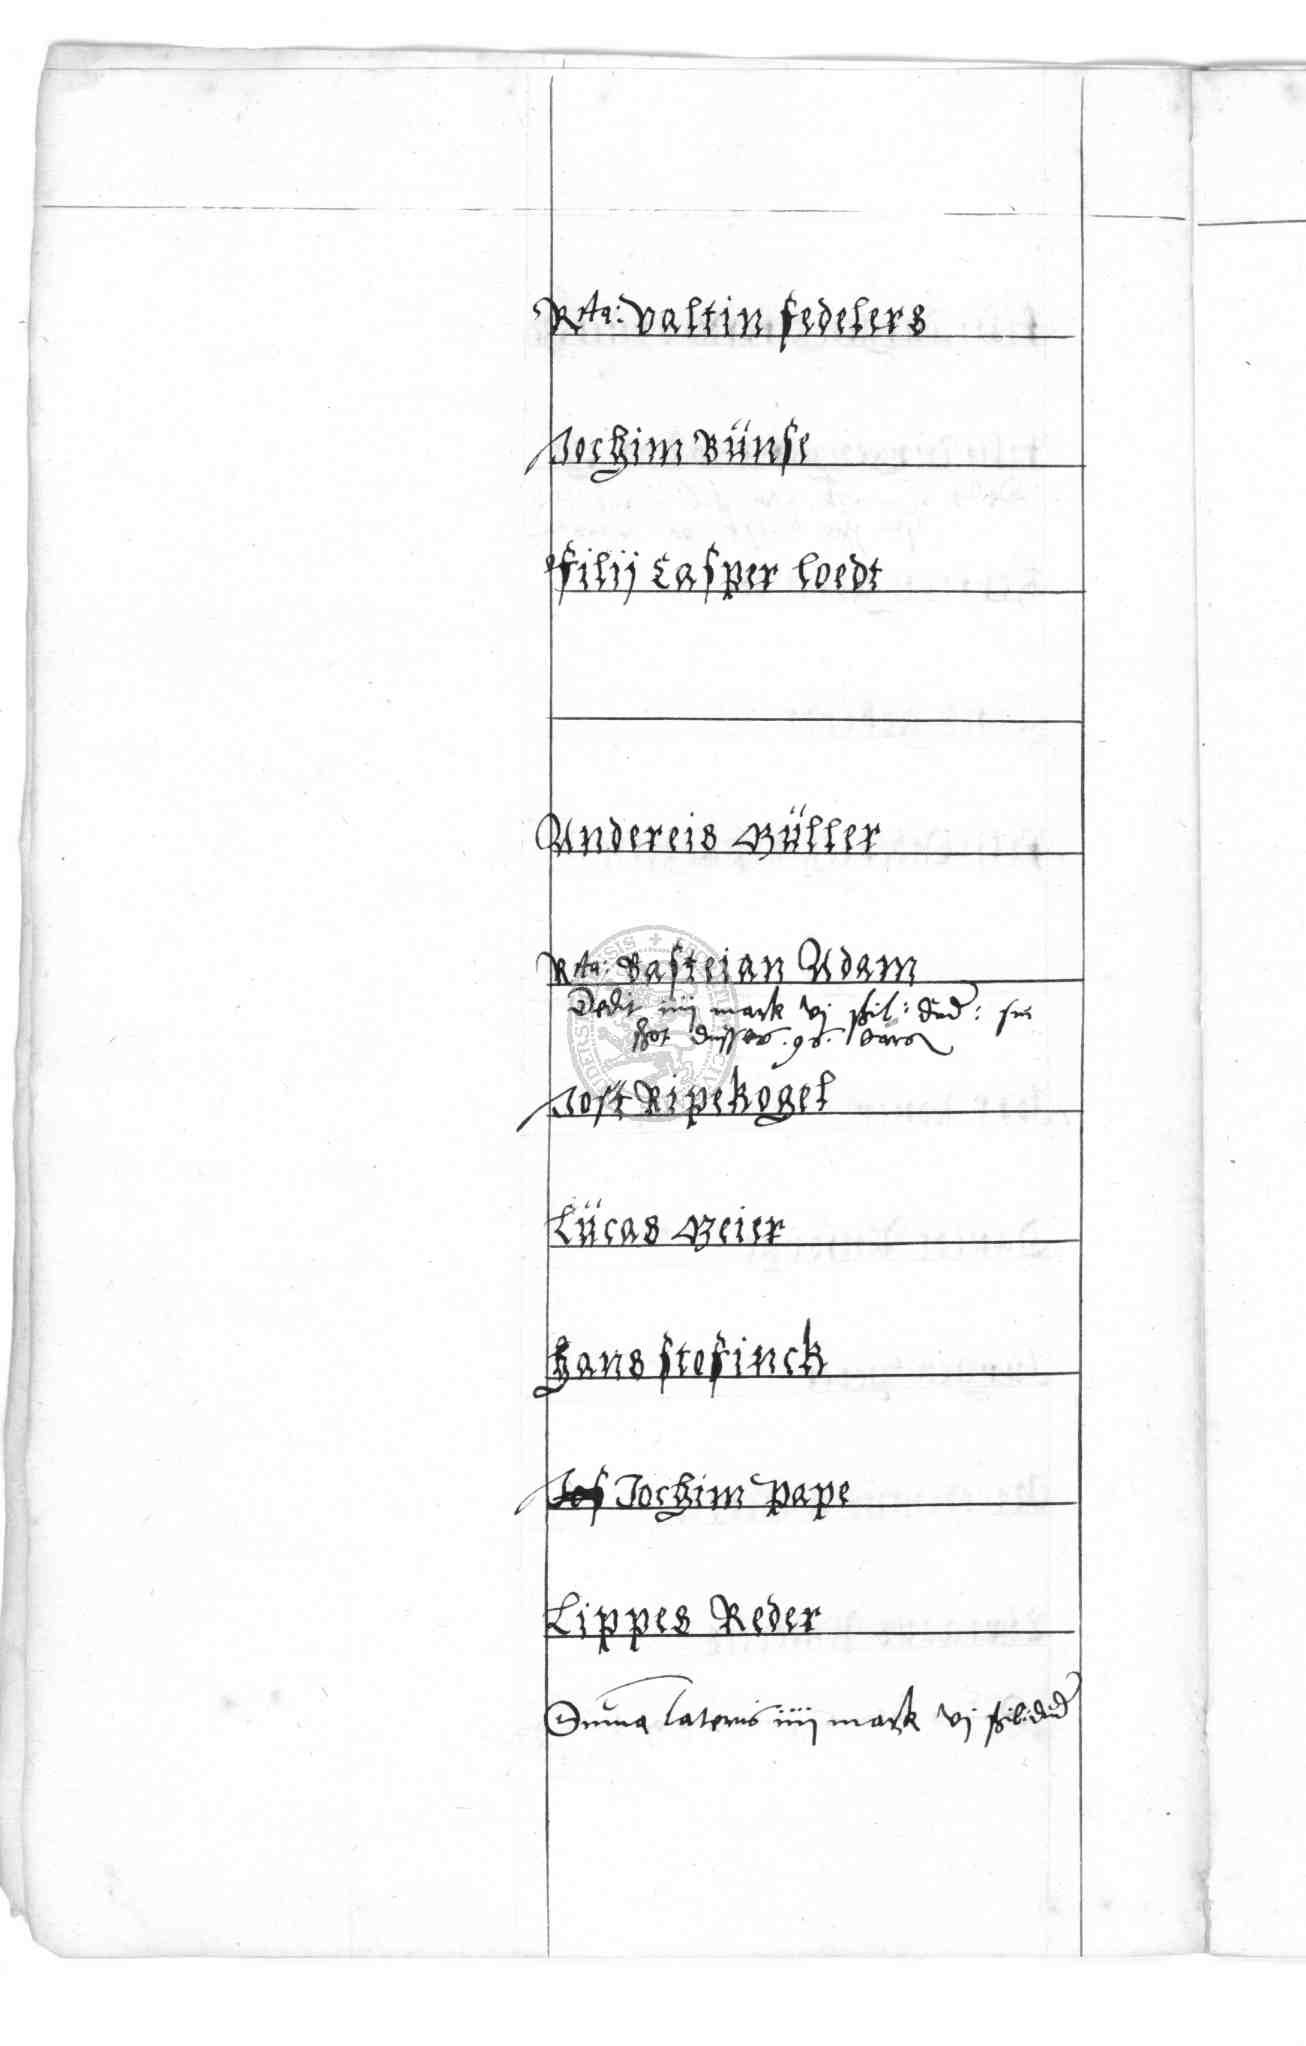 Rta: Valtin fedelers
Jochim Bünse
filij Casper loedt
Andereis Müller
Rta: Basteian Adam
Dedit iiij mark vj ßil: d
ßot dusses 98. Jares
Jost Ripekogel
Lücas Meier
Hans stefinck
Jos Jochim Pape
Lippes Reder
Suma lateris iiij mark vj ßil: